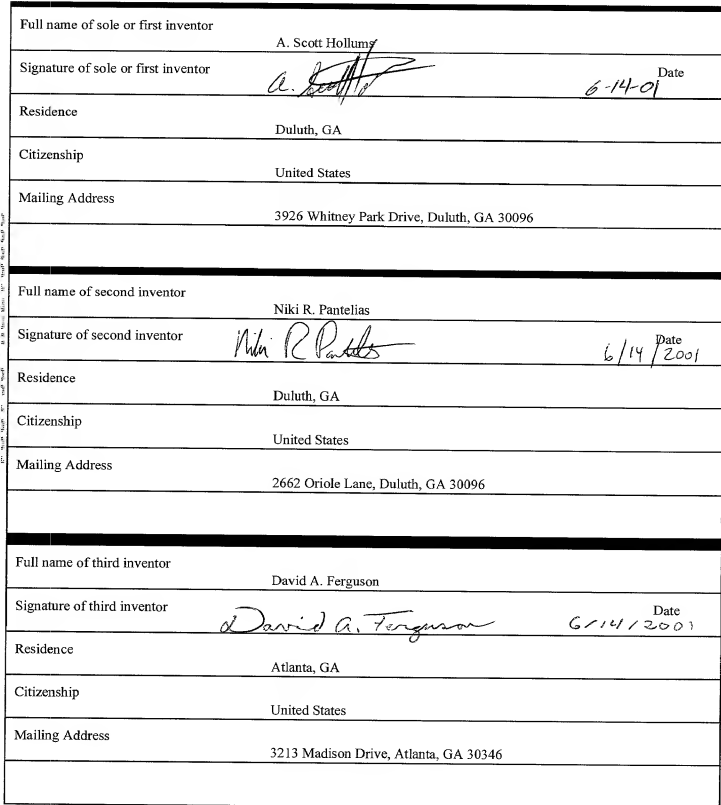 Full name of sole or first inventor
A. Scott Hollums
Signature of sole or first inventor
A. Scott
Date
6-14-01
Residence
Duluth, GA
Citizenship
United States
Mailing Address
3926 Whitney Park Drive, Duluth, GA 30096
Full name of second inventor
Niki R. Pantelias
Signature of second inventor
Niki R Pantelias
Date
6/14/2001
Residence
Duluth, GA
Citizenship
United States
Mailing Address
2662 Oriole Lane, Duluth, GA 30096
Full name of third inventor
David A. Ferguson
Signature of third inventor
David A. Ferguson
Date
6/14/2001
Residence
Atlanta, GA
Citizenship
United States
Mailing Address
3213 Madison Drive, Atlanta, GA 30346